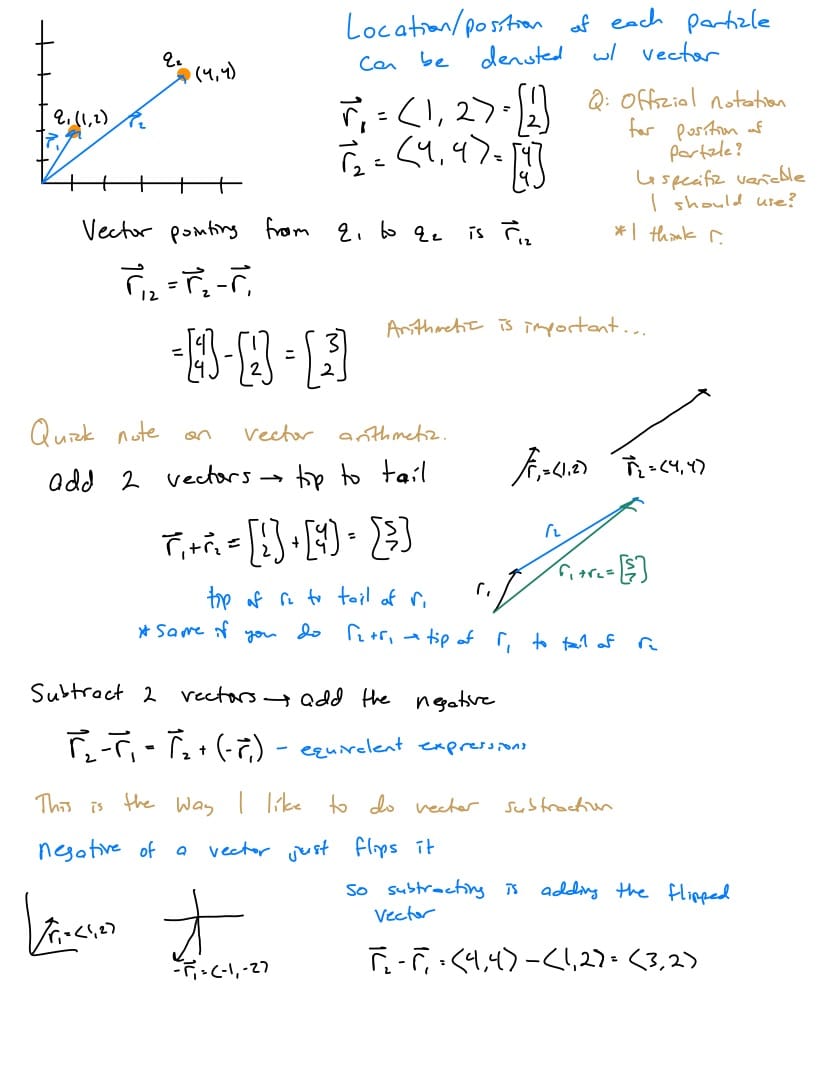 Location/position of each particle
can be denoted w/ vector
q₂
(4,4)
q₁(1,2)
r⃗₁
r⃗₂
r⃗₁ = <1, 2> = [1 2]
r⃗₂ = <4, 4> = [4 4]
Q: Official notation
for position of
particle?
↳ specific variable
I should use?
*I think r.
Vector pointing from q₁ to q₂ is r⃗₁₂
r⃗₁₂ = r⃗₂ - r⃗₁
= [4 4] - [1 2] = [3 2]
Arithmetic is important...
Quick note on vector arithmetic.
add 2 vectors → tip to tail
r⃗₁ = <1,2)
r⃗₂ = <4,4>
r⃗₁ + r⃗₂ = [1 2] + [4 4] = [5 7]
r₂
r₁
r₁ + r₂ = [5 7]
tip of r₂ to tail of r₁
* Same if you do r₂+r₁ → tip of r₁ to tail of r₂
Subtract 2 vectors → add the negative
r⃗₂ - r⃗₁ = r⃗₂ + (-r⃗₁) - equivalent expressions
This is the way I like to do vector subtraction
negative of a vector just flips it
r⃗₁ = <1,2>
-r⃗₁ = <-1,-2>
So subtracting is adding the flipped
vector
r⃗₂ - r⃗₁ = <4,4> - <1,2> = <3,2>